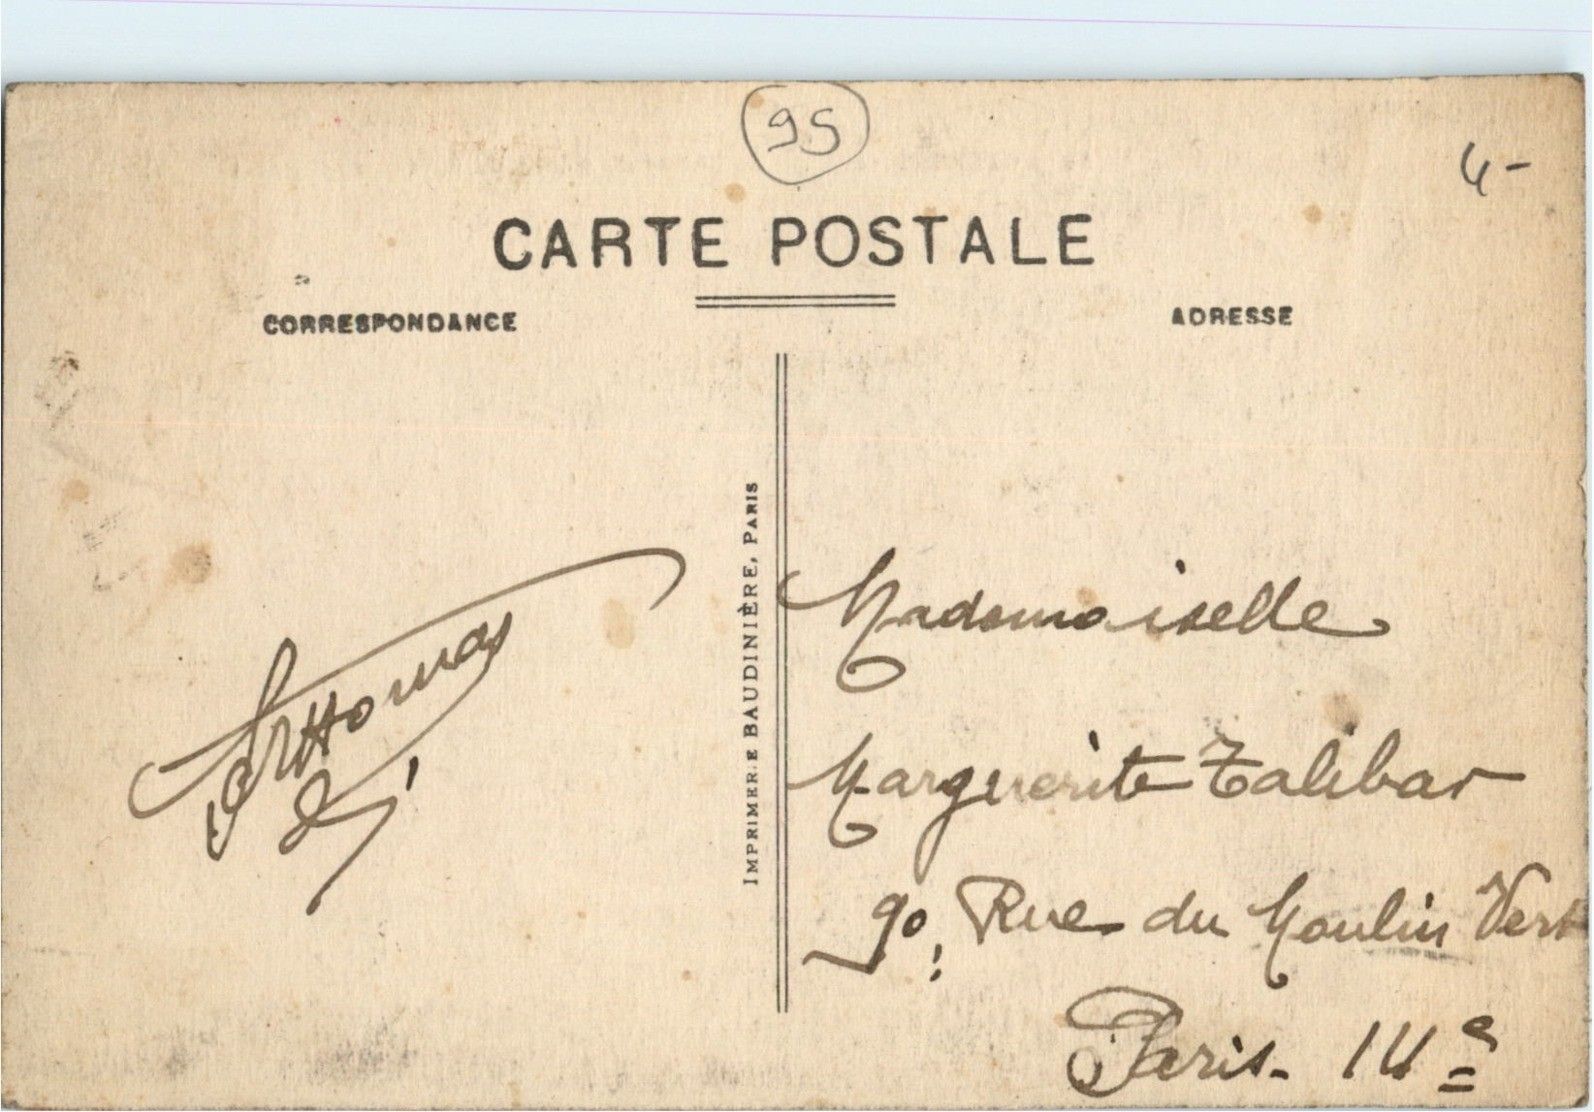 95
4-
CARTE POSTALE
CORRESPONDANCE
ADRESSE
IMPRIMERIE BAUDINIÈRE, PARIS
Mademoiselle
Marguerite Talibar
90, Rue du Moulin Vert
Paris. 14e